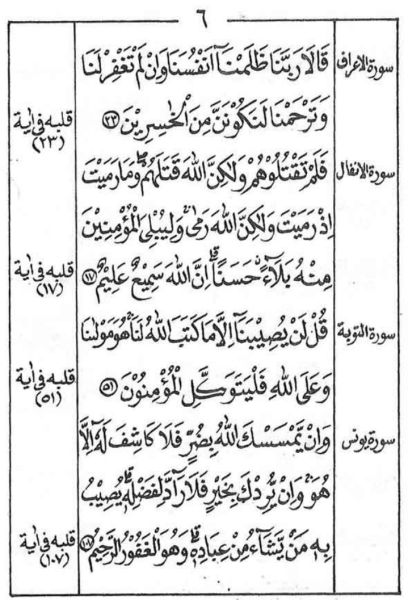 ٦
سورة الاعراف
قَالَا رَبَّنَا ظَلَمْنَآ اَنْفُسَنَا وَاِنْ لَمْ تَغْفِرْ لَنَا
وَتَرْحَمْنَا لَنَكُوْنَنَّ مِنَ الْخٰسِرِيْنَ ﴿٢٣﴾
قلبه فى اية
(٢٣)
سورة الانفال
فَلَمْ تَقْتُلُوْهُمْ وَلٰكِنَّ اللهَ قَتَلَهُمْ ۖ وَمَا رَمَيْتَ
اِذْ رَمَيْتَ وَلٰكِنَّ اللهَ رَمٰى ۚ وَلِيُبْلِىَ الْمُؤْمِنِيْنَ
مِنْهُ بَلَآءً حَسَنًا ۗ اِنَّ اللهَ سَمِيْعٌ عَلِيْمٌ ﴿١٧﴾
قلبه فى اية
(١٧)
سورة التوبة
قُلْ لَنْ يُصِيْبَنَآ اِلَّا مَا كَتَبَ اللهُ لَنَا ۚ هُوَ مَوْلٰىنَا
وَعَلَى اللهِ فَلْيَتَوَكَّلِ الْمُؤْمِنُوْنَ ﴿٥١﴾
قلبه فى اية
(٥١)
سورة يونس
وَاِنْ يَّمْسَسْكَ اللهُ بِضُرٍّ فَلَا كَاشِفَ لَهٗٓ اِلَّا
هُوَ ۚ وَاِنْ يُّرِدْكَ بِخَيْرٍ فَلَا رَآدَّ لِفَضْلِهٖ ۗ يُصِيْبُ
بِهٖ مَنْ يَّشَآءُ مِنْ عِبَادِهٖ ۗ وَهُوَ الْغَفُوْرُ الرَّحِيْمُ ﴿١٠٧﴾
قلبه فى اية
(١٠٧)